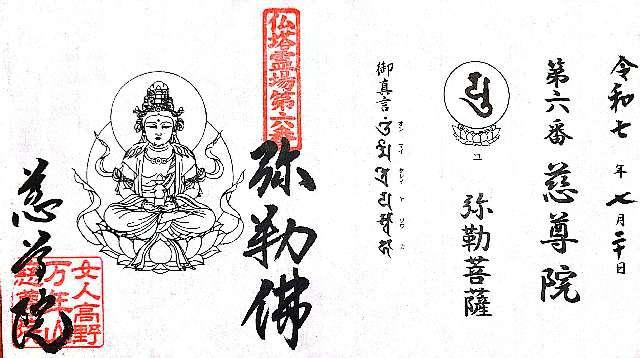 令和七年七月二十日
第六番 慈尊院
弥勒菩薩
ユ
御真言
オン マイ タレイ ヤ ソワ カ
仏塔霊場第六番
弥勒佛
慈尊院
女人高野
万年山
慈尊院